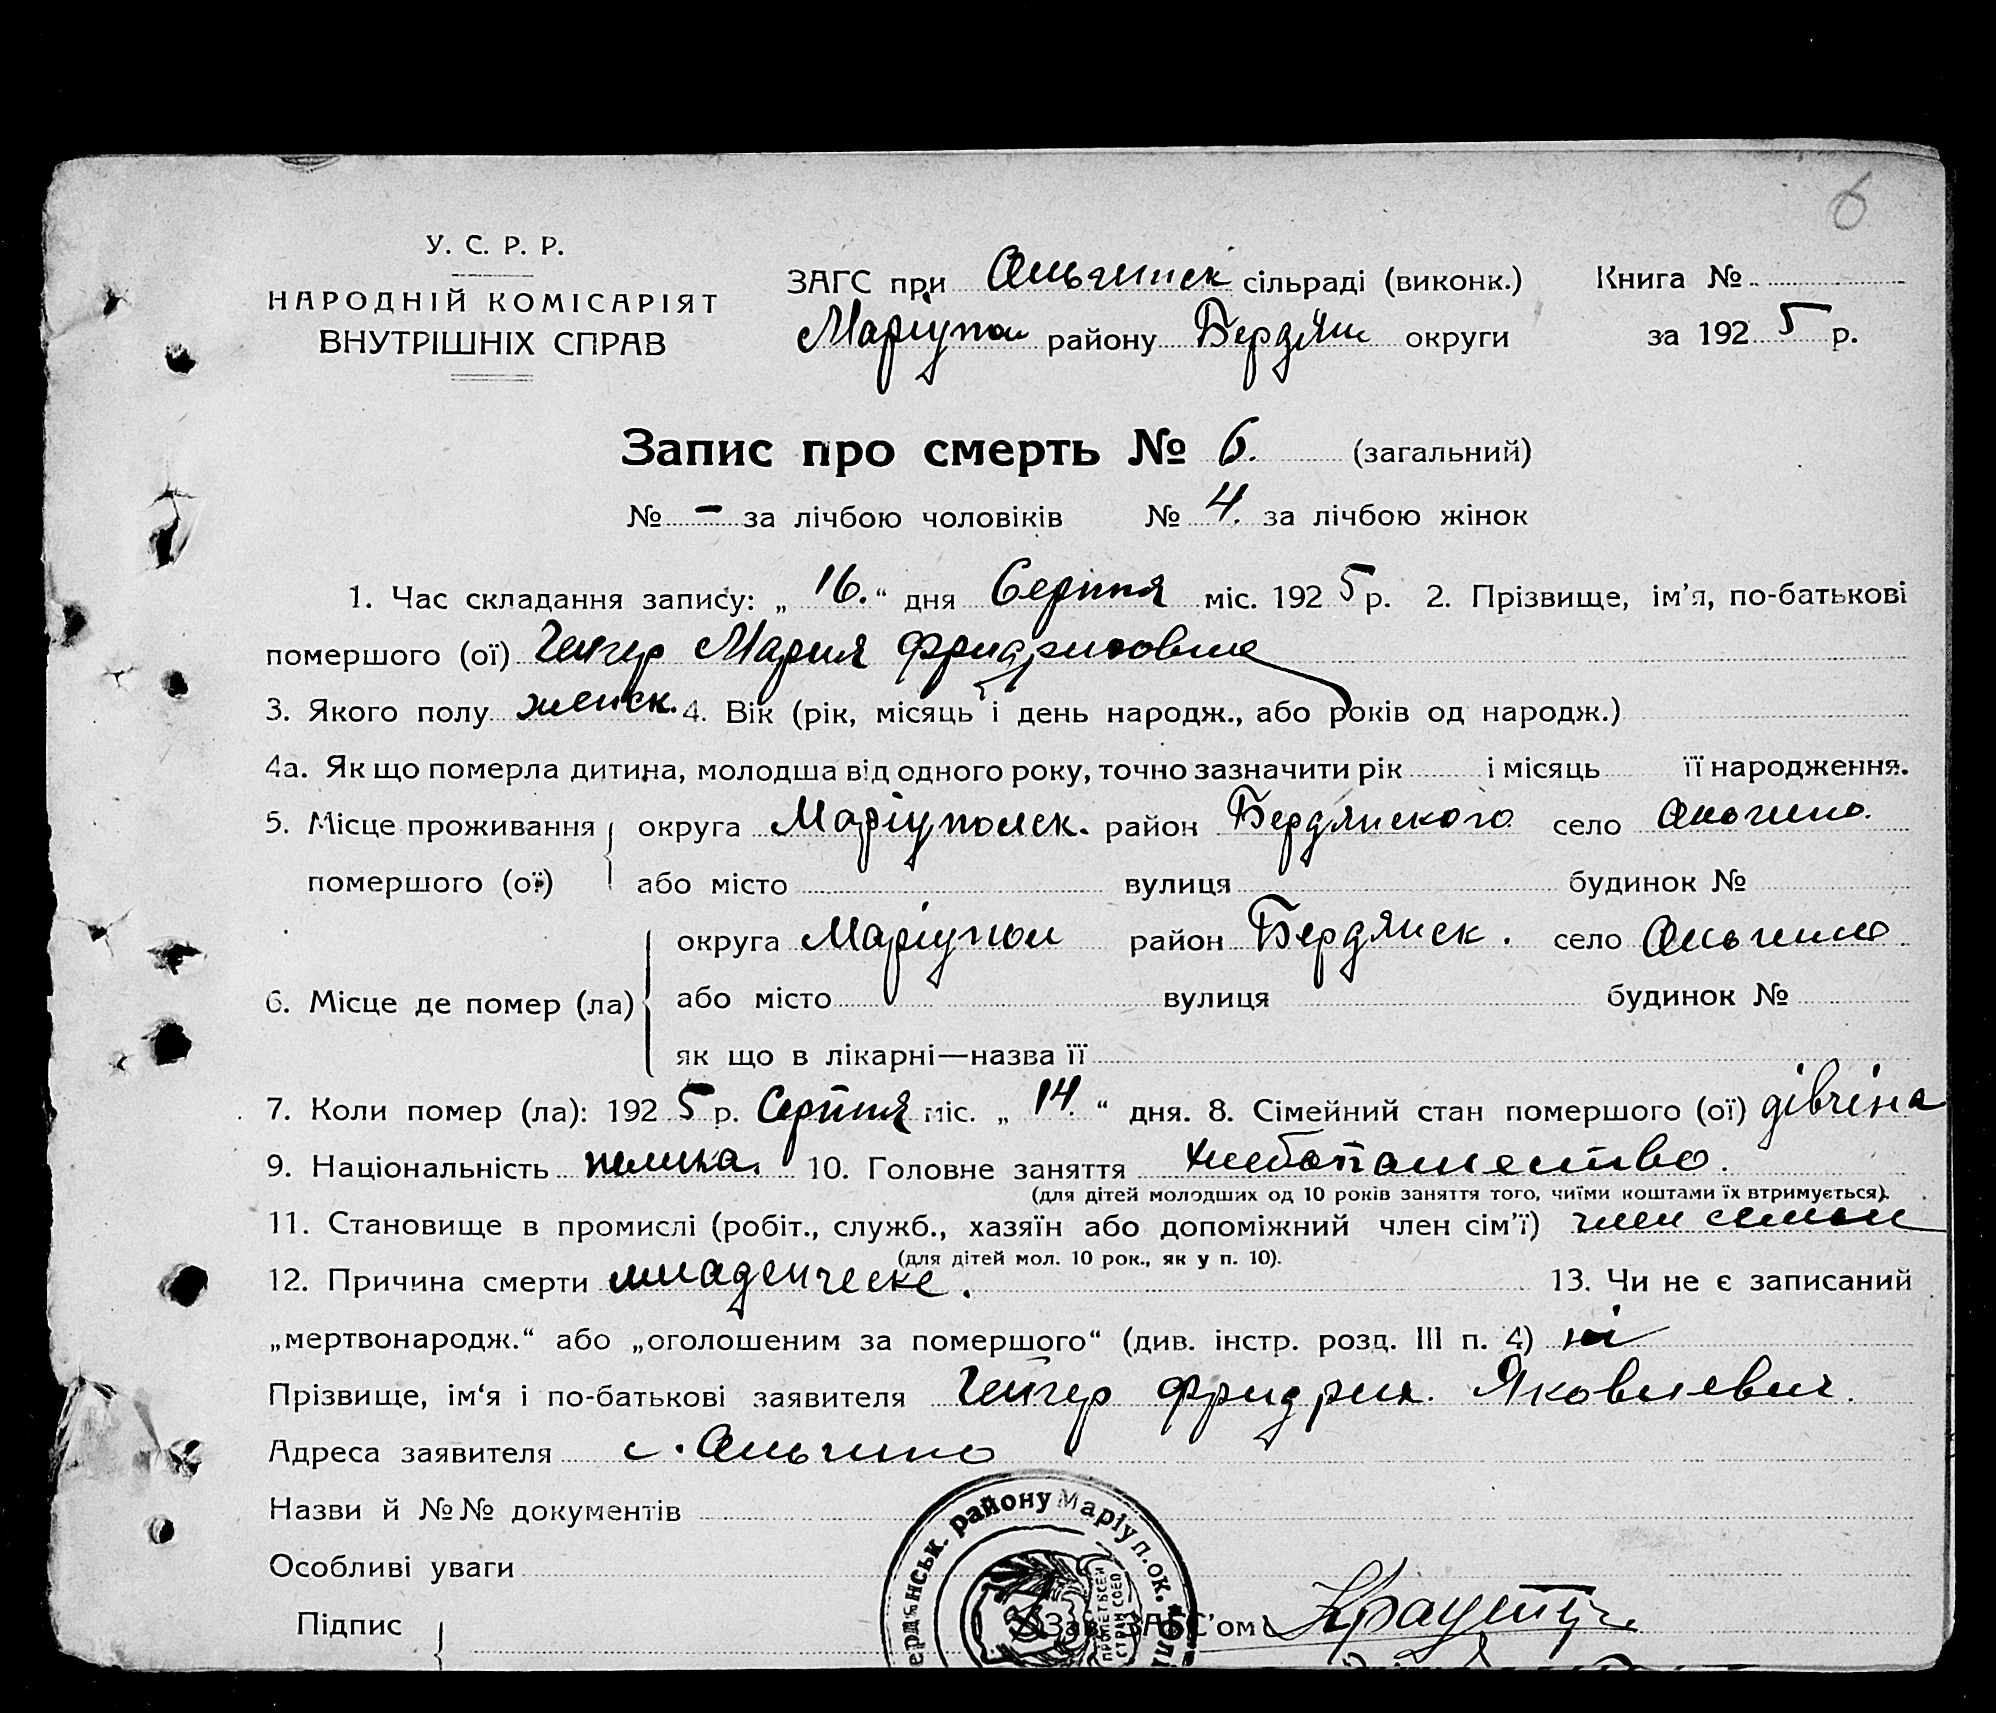 6
У. С. Р. Р.
НАРОДНІЙ КОМІСАРІЯТ
ВНУТРІШНІХ СПРАВ
ЗАГС при Ольгинск сільраді (виконк.)
Маріупол району Бердян округи
Книга №
за 1925 р.
Запис про смерть № 6. (загальний)
№ - за лічбою чоловіків № 4. за лічбою жінок
1. Час складання запису: „16.“ дня Серпня міс. 1925 р. 2. Прізвище, ім'я, по-батькові
помершого (ої) Гейгер Мария Фридриховна
3. Якого полу женск. 4. Вік (рік, місяць і день народж., або років од народж.)
4а. Як що померла дитина, молодша від одного року, точно зазначити рік і місяць її народження.
5. Місце проживання округа Маріуполск. район Бердянского село Ольгино.
помершого (ої) або місто вулиця будинок №
округа Маріупол район Бердянск. село Ольгино
6. Місце де помер (ла) або місто вулиця будинок №
як що в лікарні—назва її
7. Коли помер (ла): 1925 р. Серпня міс. „14.“ дня. 8. Сімейний стан помершого (ої) дівчіна
9. Національність немка. 10. Головне заняття хлебопашество.
(для дітей молодших од 10 років заняття того, чиїми коштами їх втримується).
11. Становище в промислі (робіт., служб., хазяїн або допоміжний член сім'ї) член семьи
(для дітей мол. 10 рок., як у п. 10).
12. Причина смерти младенческе. 13. Чи не є записаний
„мертвонародж.“ або „оголошеним за помершого“ (див. інстр. розд. III п. 4) ні
Прізвище, ім‘я і по-батькові заявителя Гейгер Фридрих Яковлевич.
Адреса заявителя с. Ольгино
Назви й №№ документів
Особливі уваги
Підпис Зав. ЗАГС'ом
районy Маріуп. ок.